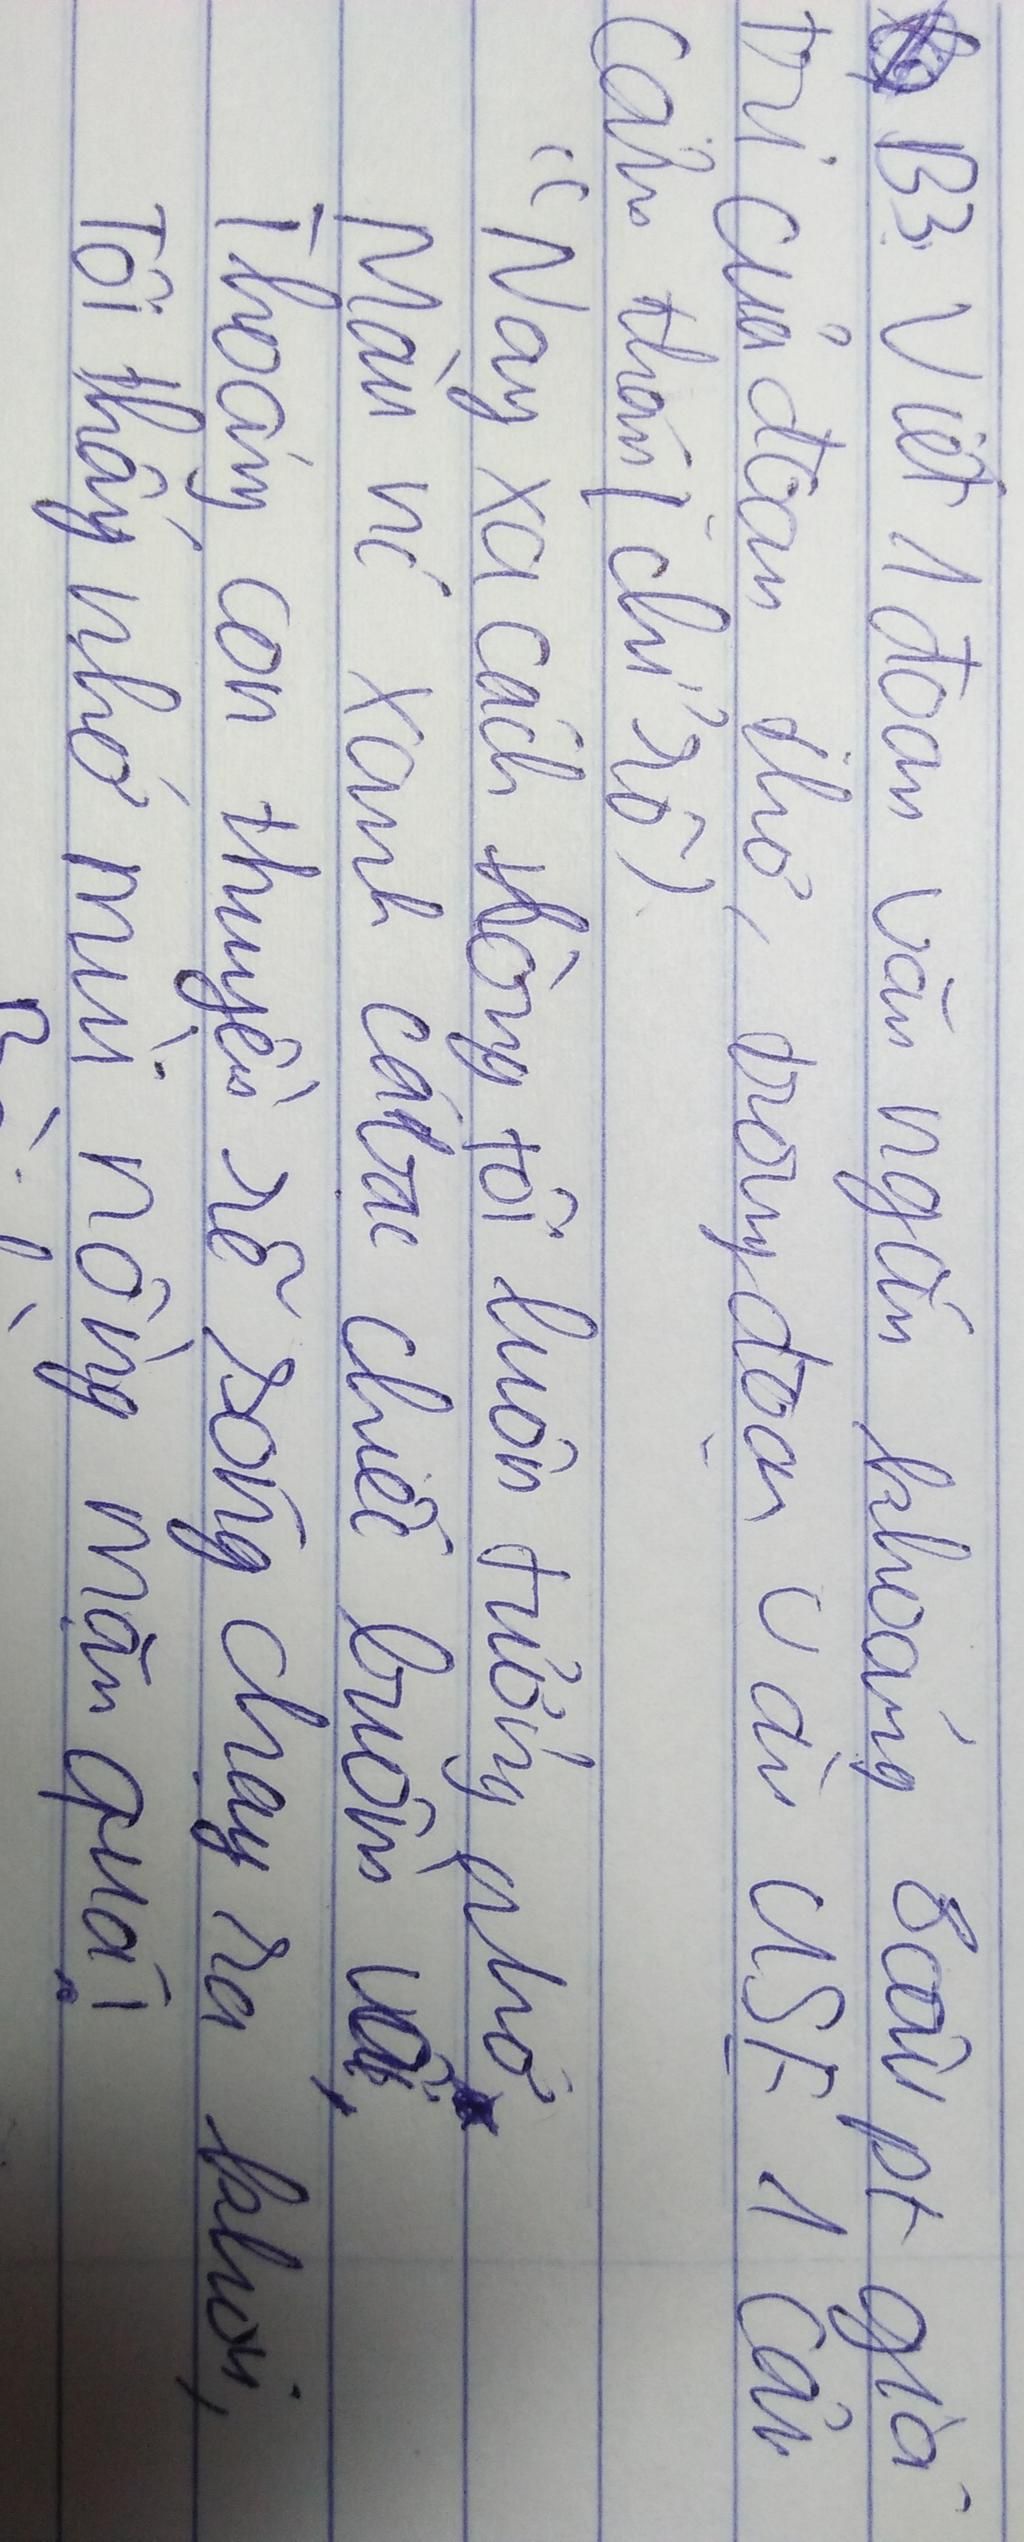 B3. Viết 1 đoạn văn ngắn khoảng 8 câu pt giá
trị của đoạn thơ, trong đoạn văn USE 1 câu
cảm thán (chỉ rõ)
"Nay xa cách lòng tôi luôn tưởng nhớ
Màu nước xanh cá bạc chiếc buồm vôi,
Thoáng con thuyền rẽ sóng chạy ra khơi,
Tôi thấy nhớ mùi nồng mặn quá!